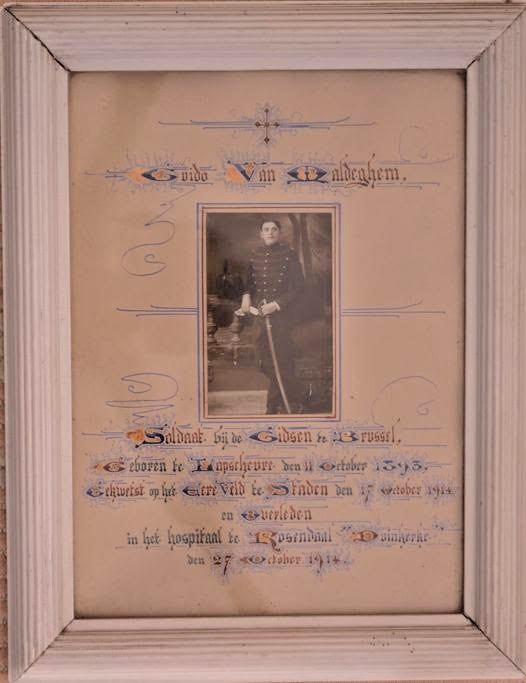 Guido Van Maldeghem.
Soldaat bij de Gidsen te Brussel,
Geboren te Lapscheure den 11 October 1893.
Gekwetst op het Eere Veld te Staden den 17 October 1914
en Overleden
in het hospitaal te Rosendaal "Duinkerke"
den 27 October 1914.